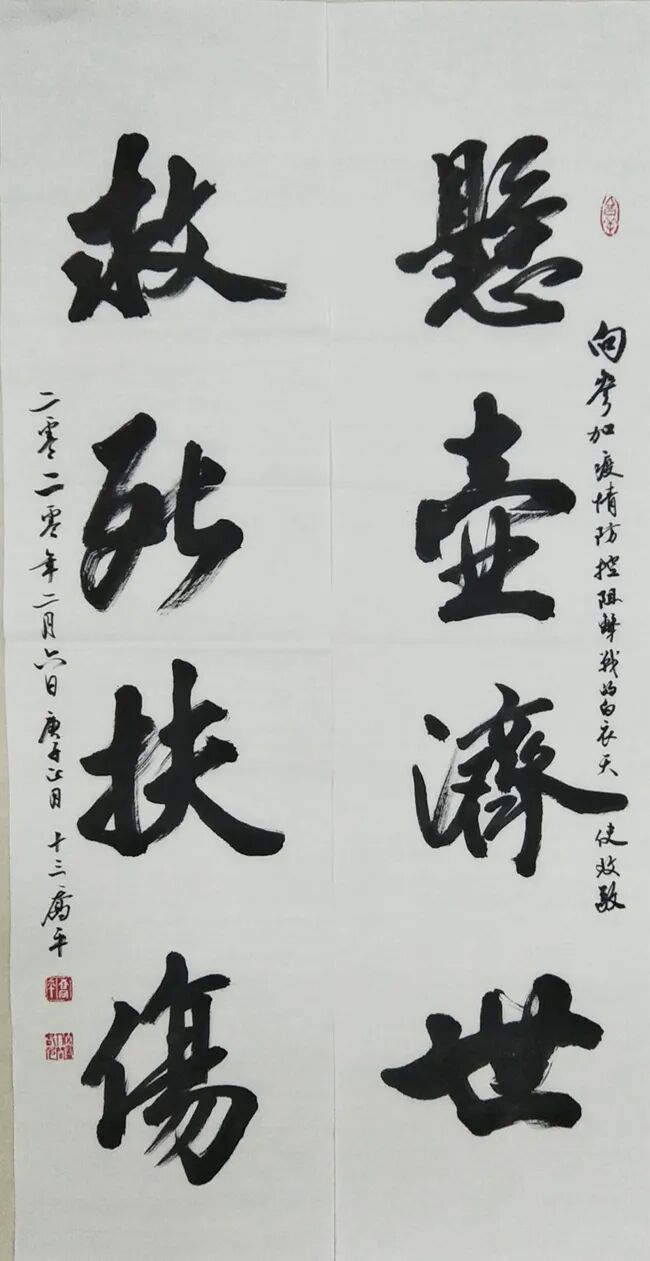 懸壺濟世
向參加疫情防控阻擊战的白衣天使致敬
救死扶傷
二零二零年二月六日庚子正月十三喬平